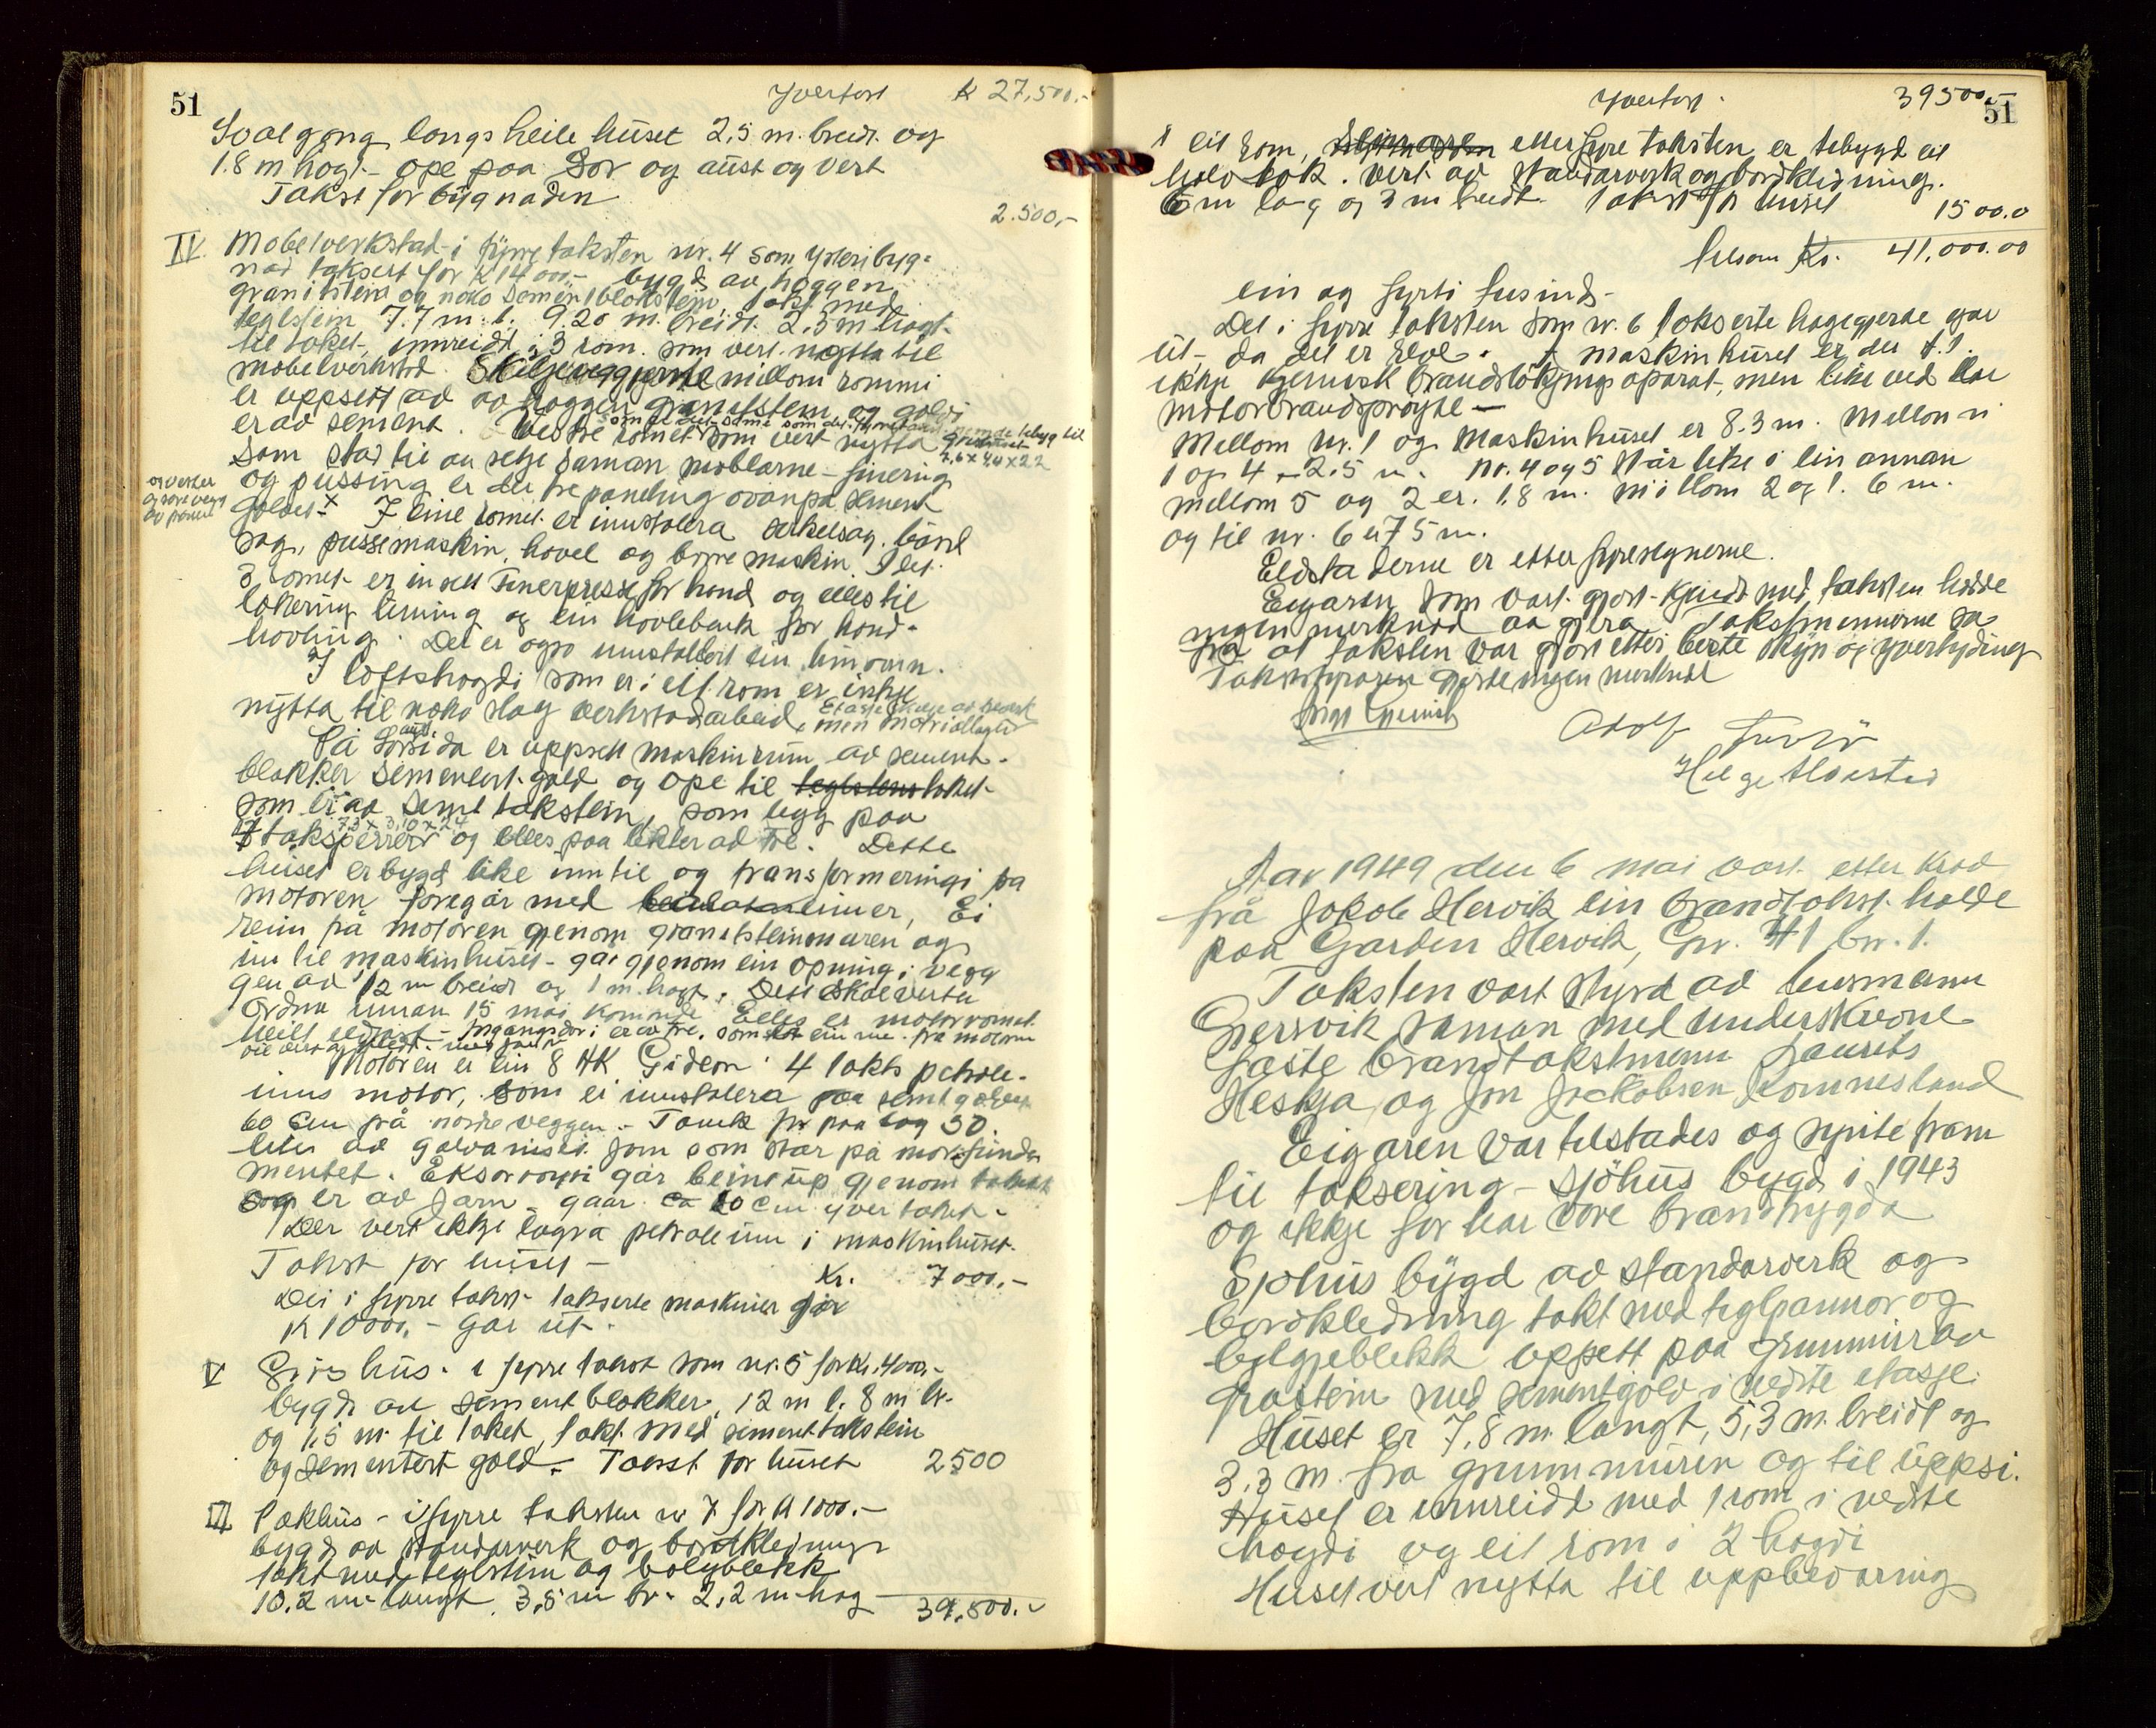 51
Yverført K 27,500.-
Svalgong langs heile huset 2,5 m. breidt og
1.8 m høgt - ope paa Sør og aust og vest
Takst for bygnaden 2.500,-
IV. Møbelverkstad i fyrre taksten nr. 4 som ysteribyg-
nad taksert for K 14000,- bygd av hoggen
granitstein og noko sementblokstein, tekt med
teglstein 7.7 m. l. 9.20 m. breidt 2,5 m høgt
til taket, innreidt i 3 rom. som vert nytta til
møbelverkstad. Skiljeveggjerne millom rommi
er uppsett av hoggen granitstein og golvi
er av sement. Vestre romet som vert nytta
som stad til aa setje saman møblarne - finering
og pussing er det tre paneling ovanpå sement
golvet x
I eine romet er innstalera serkelsag, band
sag, pussemaskin, høvel og borremaskin. I det
3 romet er insett Finerpresse for hand og elles til
lakering liming og ein hovlebenk for hand-
hovling. Det er ogso innstallert ein limovn.
I loftshøgdi som er i eit rom er inkje
nytta til noko slag verkstadarbeid, men matriallager
På sørsida er uppsett maskinrum av sement-
blokker sementert golv og ope til taket
som er av sement takstein, som ligg paa
7.3 x 3,10 x 2,4
taksperrer og elles paa lekter av tre. Dette
huset er bygd like inntil og transformeringi fra
motoren foregår med reimer, Ei
reim på motoren gjenom granitsteinmuren og
inn til maskinhuset - går gjenom ein opning i vegg
gen av 1/2 m breidt og 1 m. høgt. Dette skal verta
ordna innan 15 mai komande. Elles er motorromet
heilt eldfast - Ingangsdør i er av tre, som
Motoren er ein 8 HK Gideon 4 takts petrole-
ums motor, som er innstalera paa sementgolvet
60 cm frå nordre veggen. - Tank for paa lag 50
liter av galvanisert jarn som står på motorfunda
mentet. Eksosrøyri går beint up gjenom taket
og er av jarn - gaar ca 80 cm yver taket.
Der vert ikkje lagra petroleum i maskinhuset.
Takst for huset - Kr. 7000.-
Dei i fyrre takst takserte maskiner for
K 10000.- går ut.
V Grishus. i fyrre takst som nr. 5 for Kr. 4000,-
bygd av sement blokker, 12 m l. 8 m br.
og 1,5 m. til taket, tekt med sement takstein
og sementert golv. - Takst for huset 2500
VI Vakhus - i fyrre taksten nr 7 for K 1000.-
bygd av standarverk og bordkledning
tekt med teglstein og bølgeblekk
10.2 m. langt, 3,5 m br. 2,2 m. høg 39,500.-
51
Yverført 39500.-
i eit rom, etter fyrre taksten er tebygd eit
halv tak. vest av standarverk og bordkledning.
6 m lang og 3 m breidt. Takst for huset 1500.0
tilsam Kr. 41,000.00
ein og fyrti tusind -
Det i fyrre taksten som nr. 6 takserte hagegjerde gar
ut, da det er selt. I maskinhuset er det f.t.
ikkje kjemisk brandsløkjings aparat, men like ved har
motorbrandsprøyte -
Mellom nr. 1 og maskinhuset er 8.3 m. Mellom nr
1 og 4 - 2.5 m. Nr. 4 og 5 står like i ein annan
mellom 5 og 2 er. 1.8 m. Millom 2 og 1. 6 m.
og til nr. 6 er 75 m.
Eldstaderne er etter fyresegnerne.
Eigaren som vart gjort kjendt med taksten hadde
ingen merknad aa gjera Takstmennerne sa
fra at taksten var gjort etter beste skyn og yvertyding
Takststyraren gjorde ingen merknad
Adolf
Helge
Aar 1949 den 6 mai vart etter krav
frå Jakob Hervik ein brandtakst halde
paa Garden Hervik, Gnr. 41 bnr. 1.
Taksten vart styrd av lensmann
Gjersvik saman med underskrevne
faste brandtakstmenn Laurits
Heskja og Jon Jackobsen Tommesland
Eigaren var tilstades og synte fram
til taksering - sjøhus bygd i 1943
og ikkje før har vore brandtrygda
Sjøhus bygd av standarverk og
bordkledning takt med teglpannor og
bølgjeblekk oppsett paa grunnmur av
gråstein med sementgolv i nedste etasje.
Huset er 7,8 m. langt, 5,3 m. breidt og
3,3 m. fra grunnmuren og til uppsi.
Huset er innreidd med 1 rom i nedste
høgdi og eit rom i 2 høgdi
Huset vert nytta til uppbevaring